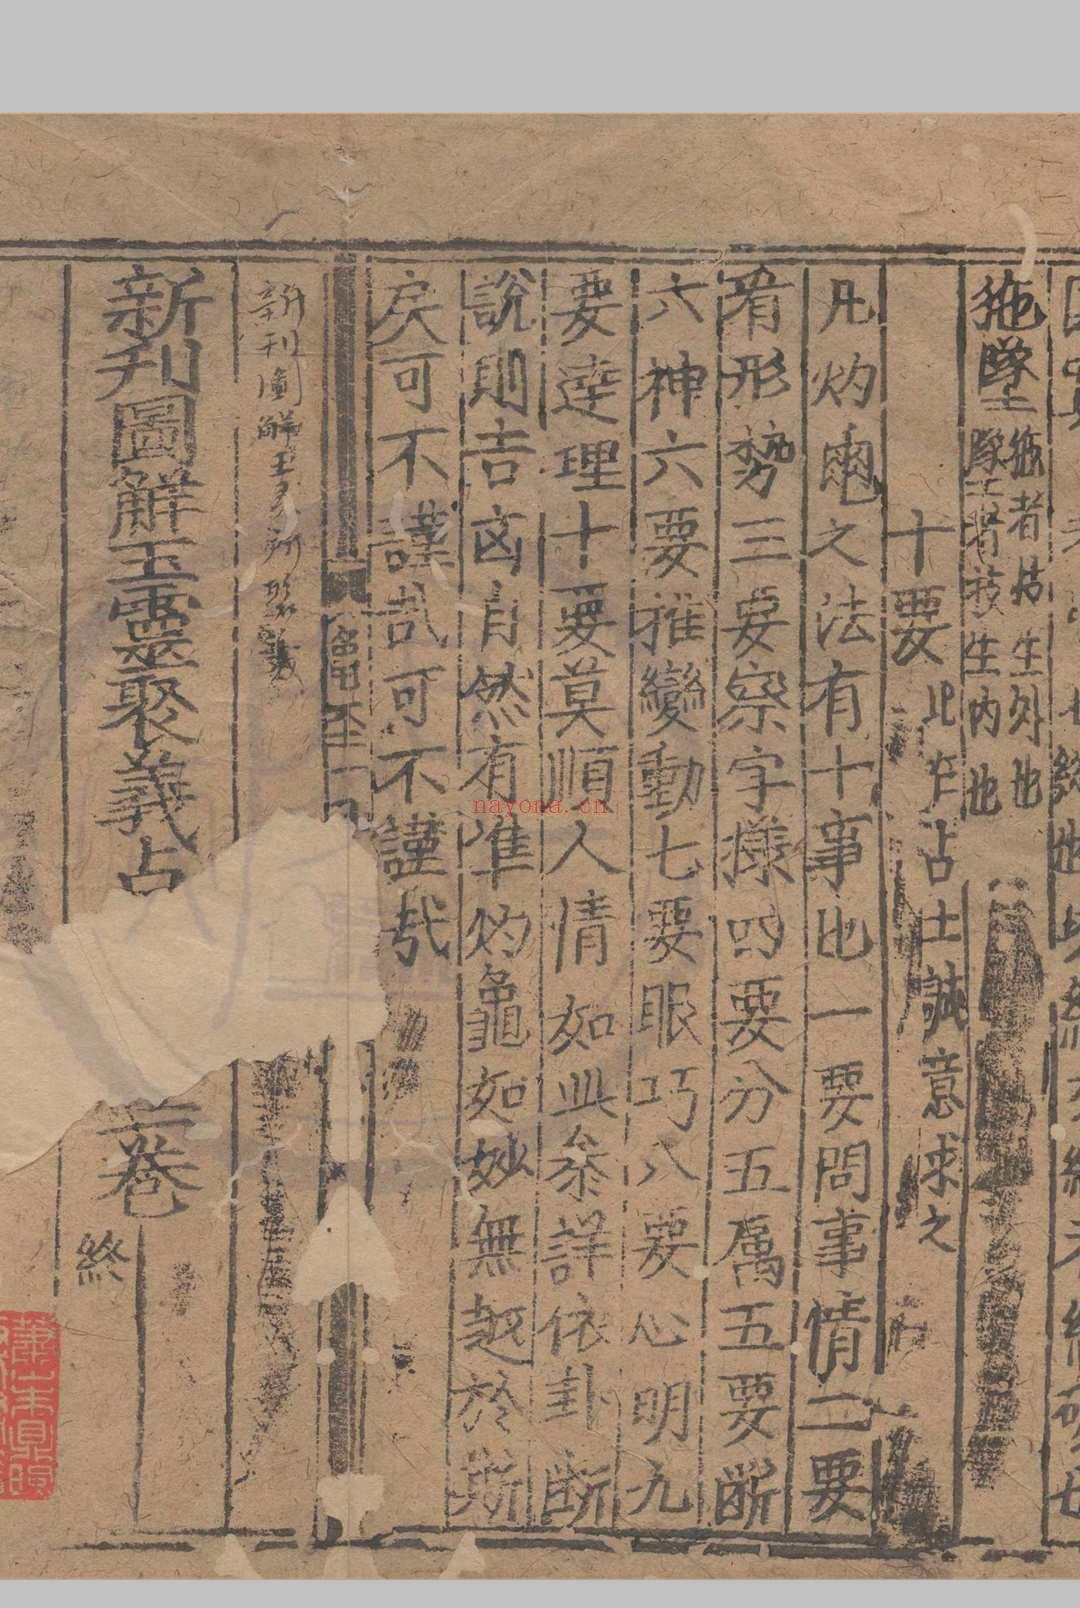 拖墜 拖者枝生外也 墜者枝生内也
十要 此乍占士誠意求之
凡灼龜之法有十事也一要問事情二要
看形勢三要察字樣四要分五属五要斷
六神六要推變動七要眼巧八要心明九
要達理十要莫順人情如此叅詳依卦斷
說則吉凶自然有准灼龜如妙無越於斯
戾可不謹哉可不謹哉
龜
新刊圖觧玉
新刊圖觧玉靈聚義占
卷
終
nayona.cn